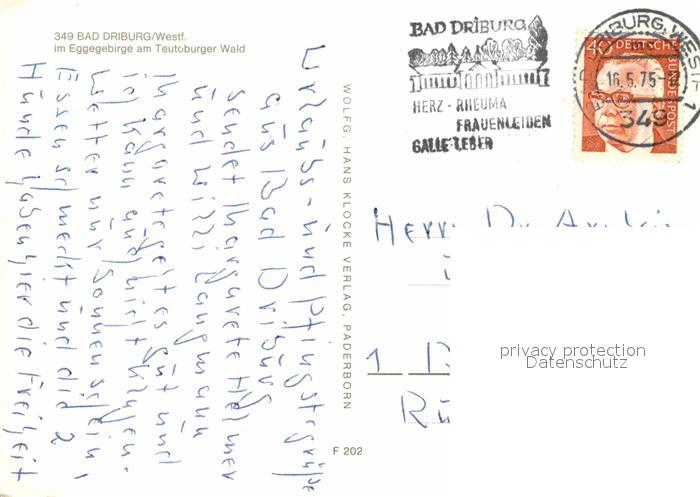 349 BAD DRIBURG/Westf.
im Eggegebirge am Teutoburger Wald
Urlaubs- und Pfingstgrüße
aus Bad Driburg
sendet Margarete Helmer
und Willi Langmann
Margarete geht es gut und
ich kann auch nicht klagen.
Wetter nur Sonnenschein,
Essen schmeckt und die 2
Hunde haben hier die Freiheit
WOLFG. HANS KLOCKE VERLAG, PADERBORN
F 202
BAD DRIBURG
HERZ · RHEUMA
FRAUENLEIDEN
GALLE · LEBER
BURG, WESTF
16.5.75
349
40 DEUTSCHE BUNDESPOST
Herrn Dr.
1
privacy protection
Datenschutz